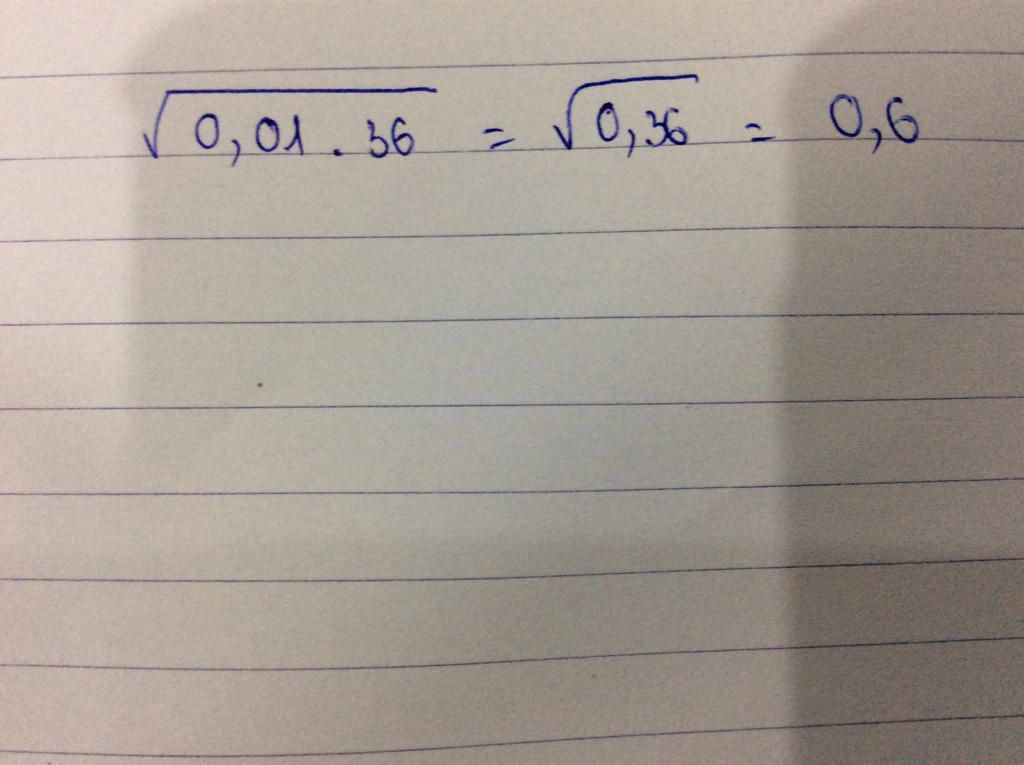 √0,01 . 36 = √0,36 = 0,6